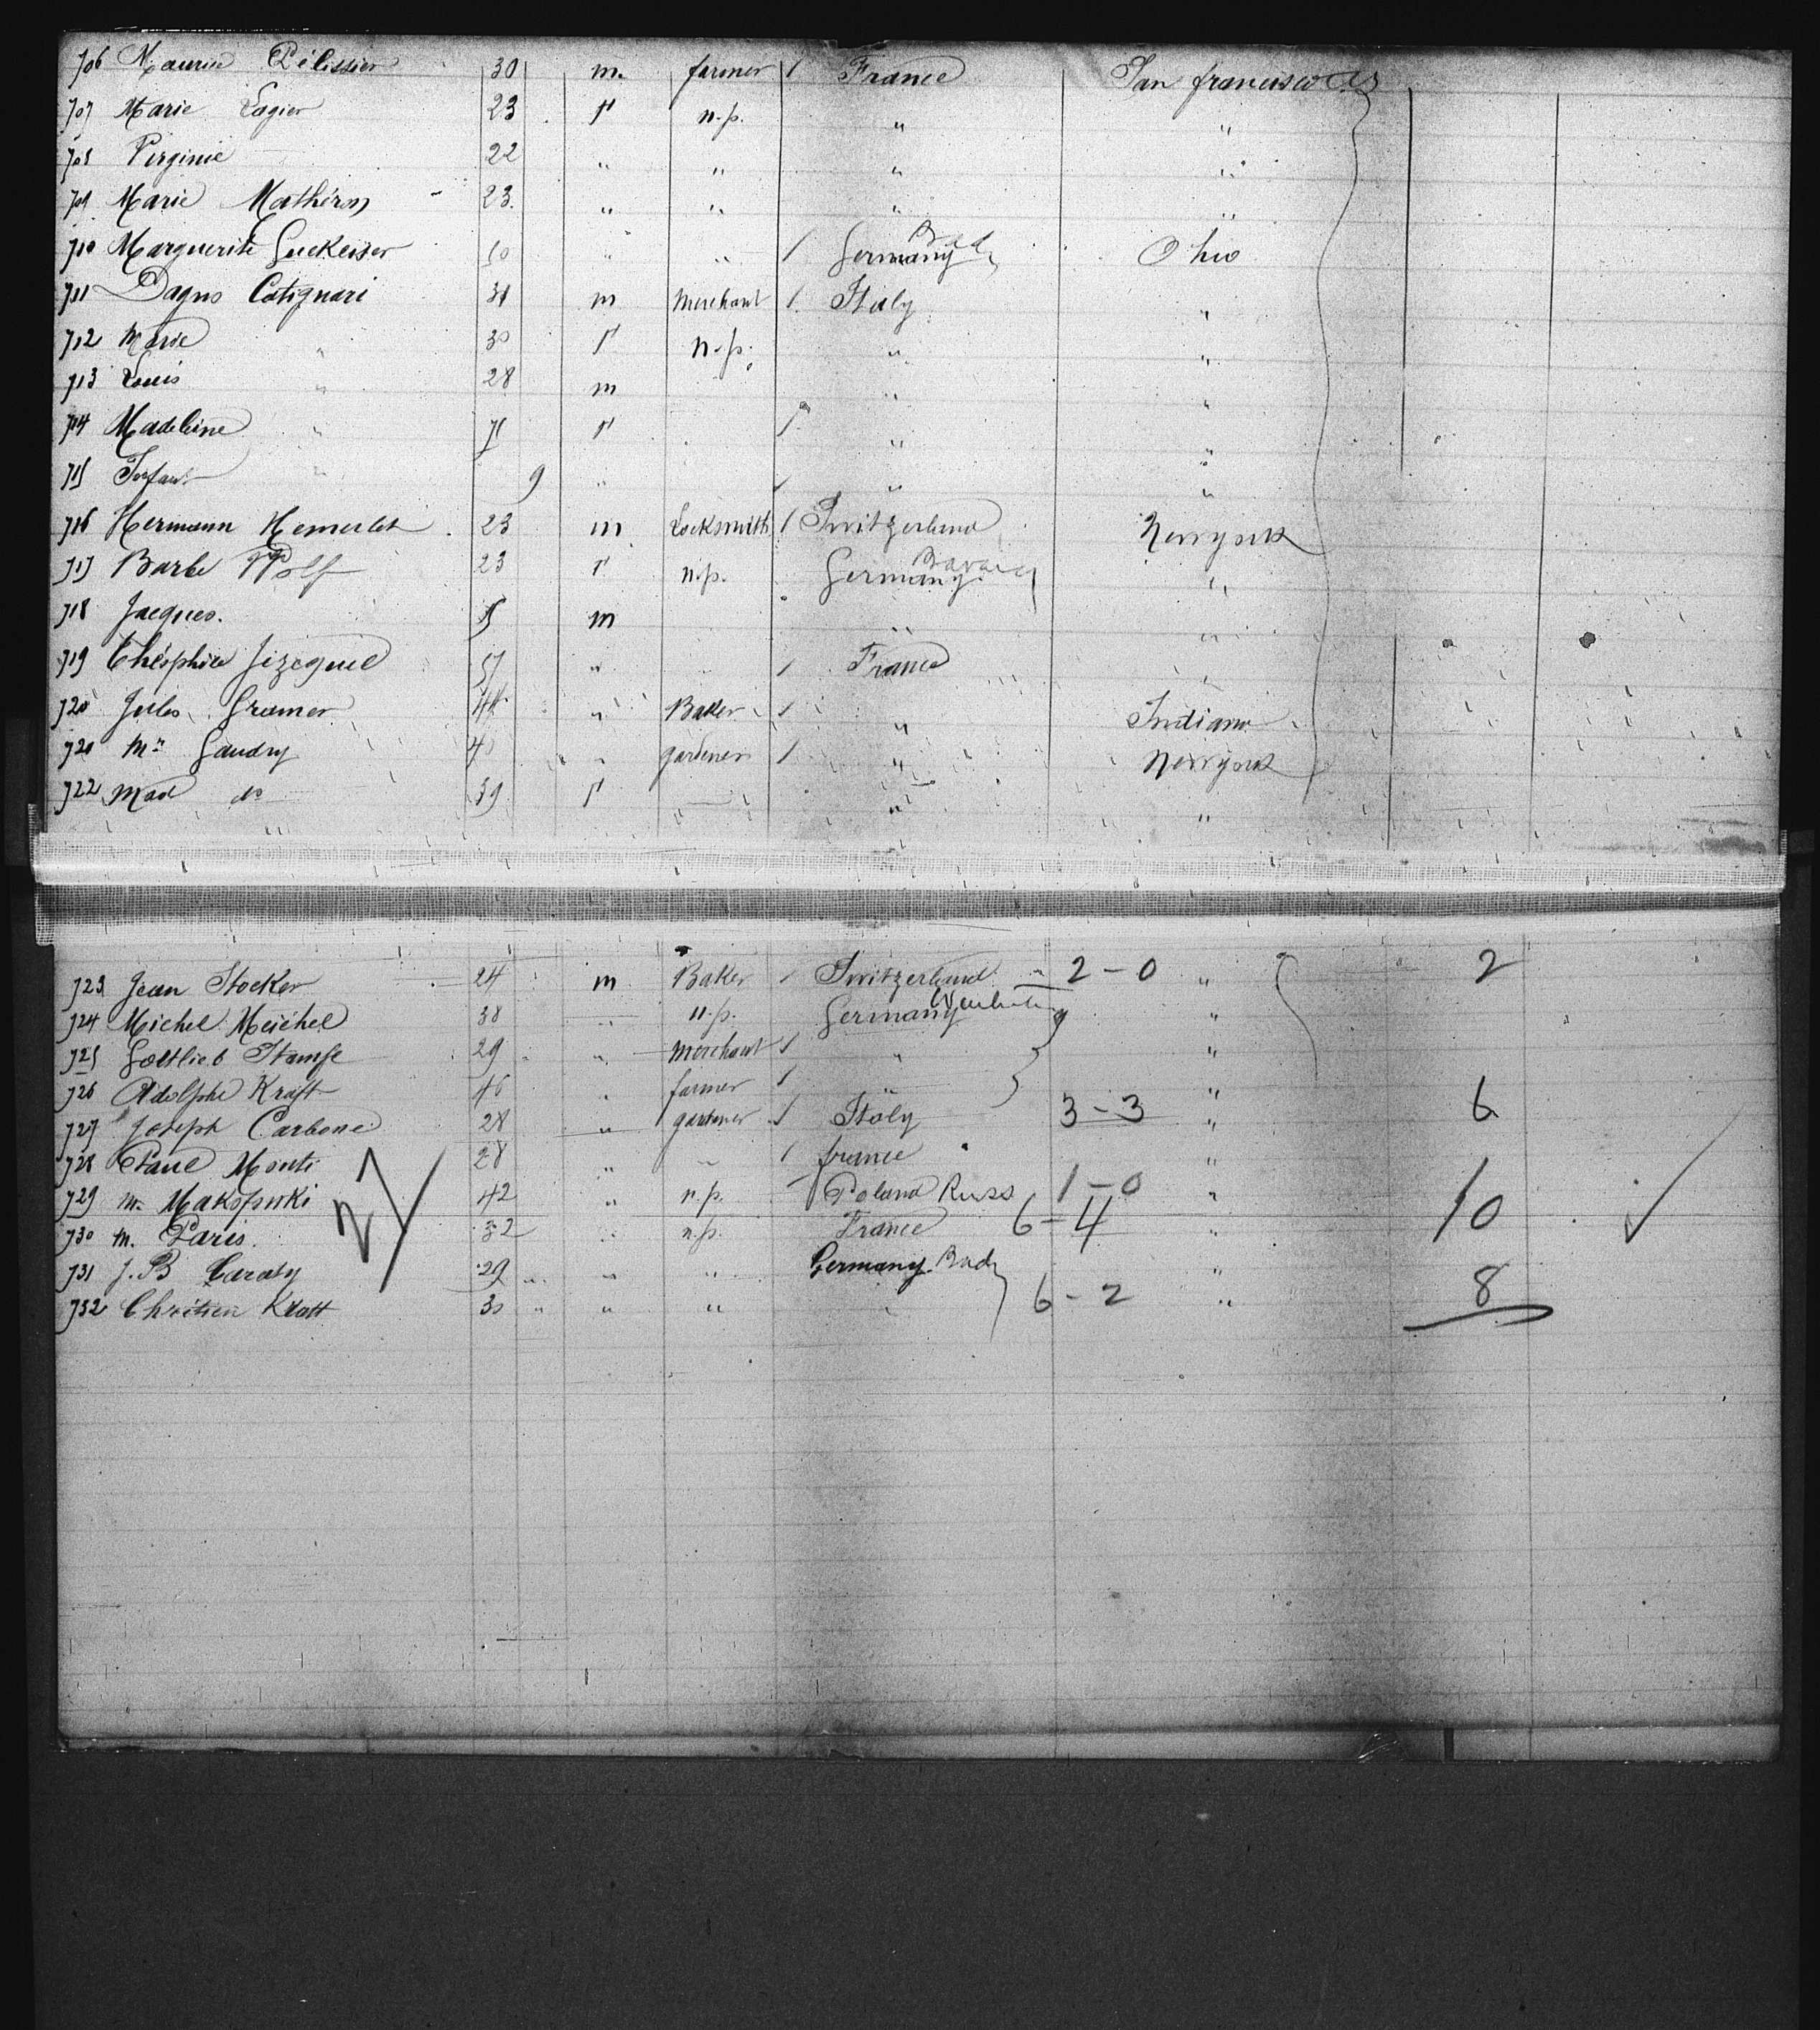 706 Maurice Pélissier 30 m. farmer 1 France San francisco
707 Marie Lagier 23 f n.p. " "
708 Virginie 22 " " " "
709 Marie Mathéron 23 " " " "
710 Marguerite 50 " " 1 Germany Bad Ohio
711 Dagno Catignari 31 m Merchant 1 Italy "
712 Marie " 30 f n.p. " "
713 Louis " 28 m " "
714 Madeleine " 71 f 1 " "
715 Infant " 9 " 1 " "
716 Hermann 23 m Locksmith 1 Switzerland Newyork
717 Barbe Wolf 23 f n.p. Germany Bavaria "
718 Jacques. 5 m " "
719 Théophile Jezequel 57 " 1 France "
720 Jules 44 " Baker 1 " Indiana
721 Mr Gaudry 40 " gardener 1 " Newyork
722 Mad do 39 f " " "
723 Jean Stocker 24 m Baker 1 Switzerland 2 - 0 " 2
724 Michel Meichel 38 " n.p. Germany "
725 Gottlieb 29 " Merchant 1 " "
726 Adolphe Kraft 46 " farmer 1 " "
727 Joseph Carbone 28 " gardener 1 Italy 3 - 3 " 6
728 Paul Monti 28 " " 1 france "
729 m. 42 " n.p. Poland Russ 1 - 0 " 1
27
730 m. Paris. 32 " n.p. France 6 - 4 " 10
731 J. B 29 " " Germany Bad "
732 Chretien Kratt 30 " " " " 6 - 2 " 8